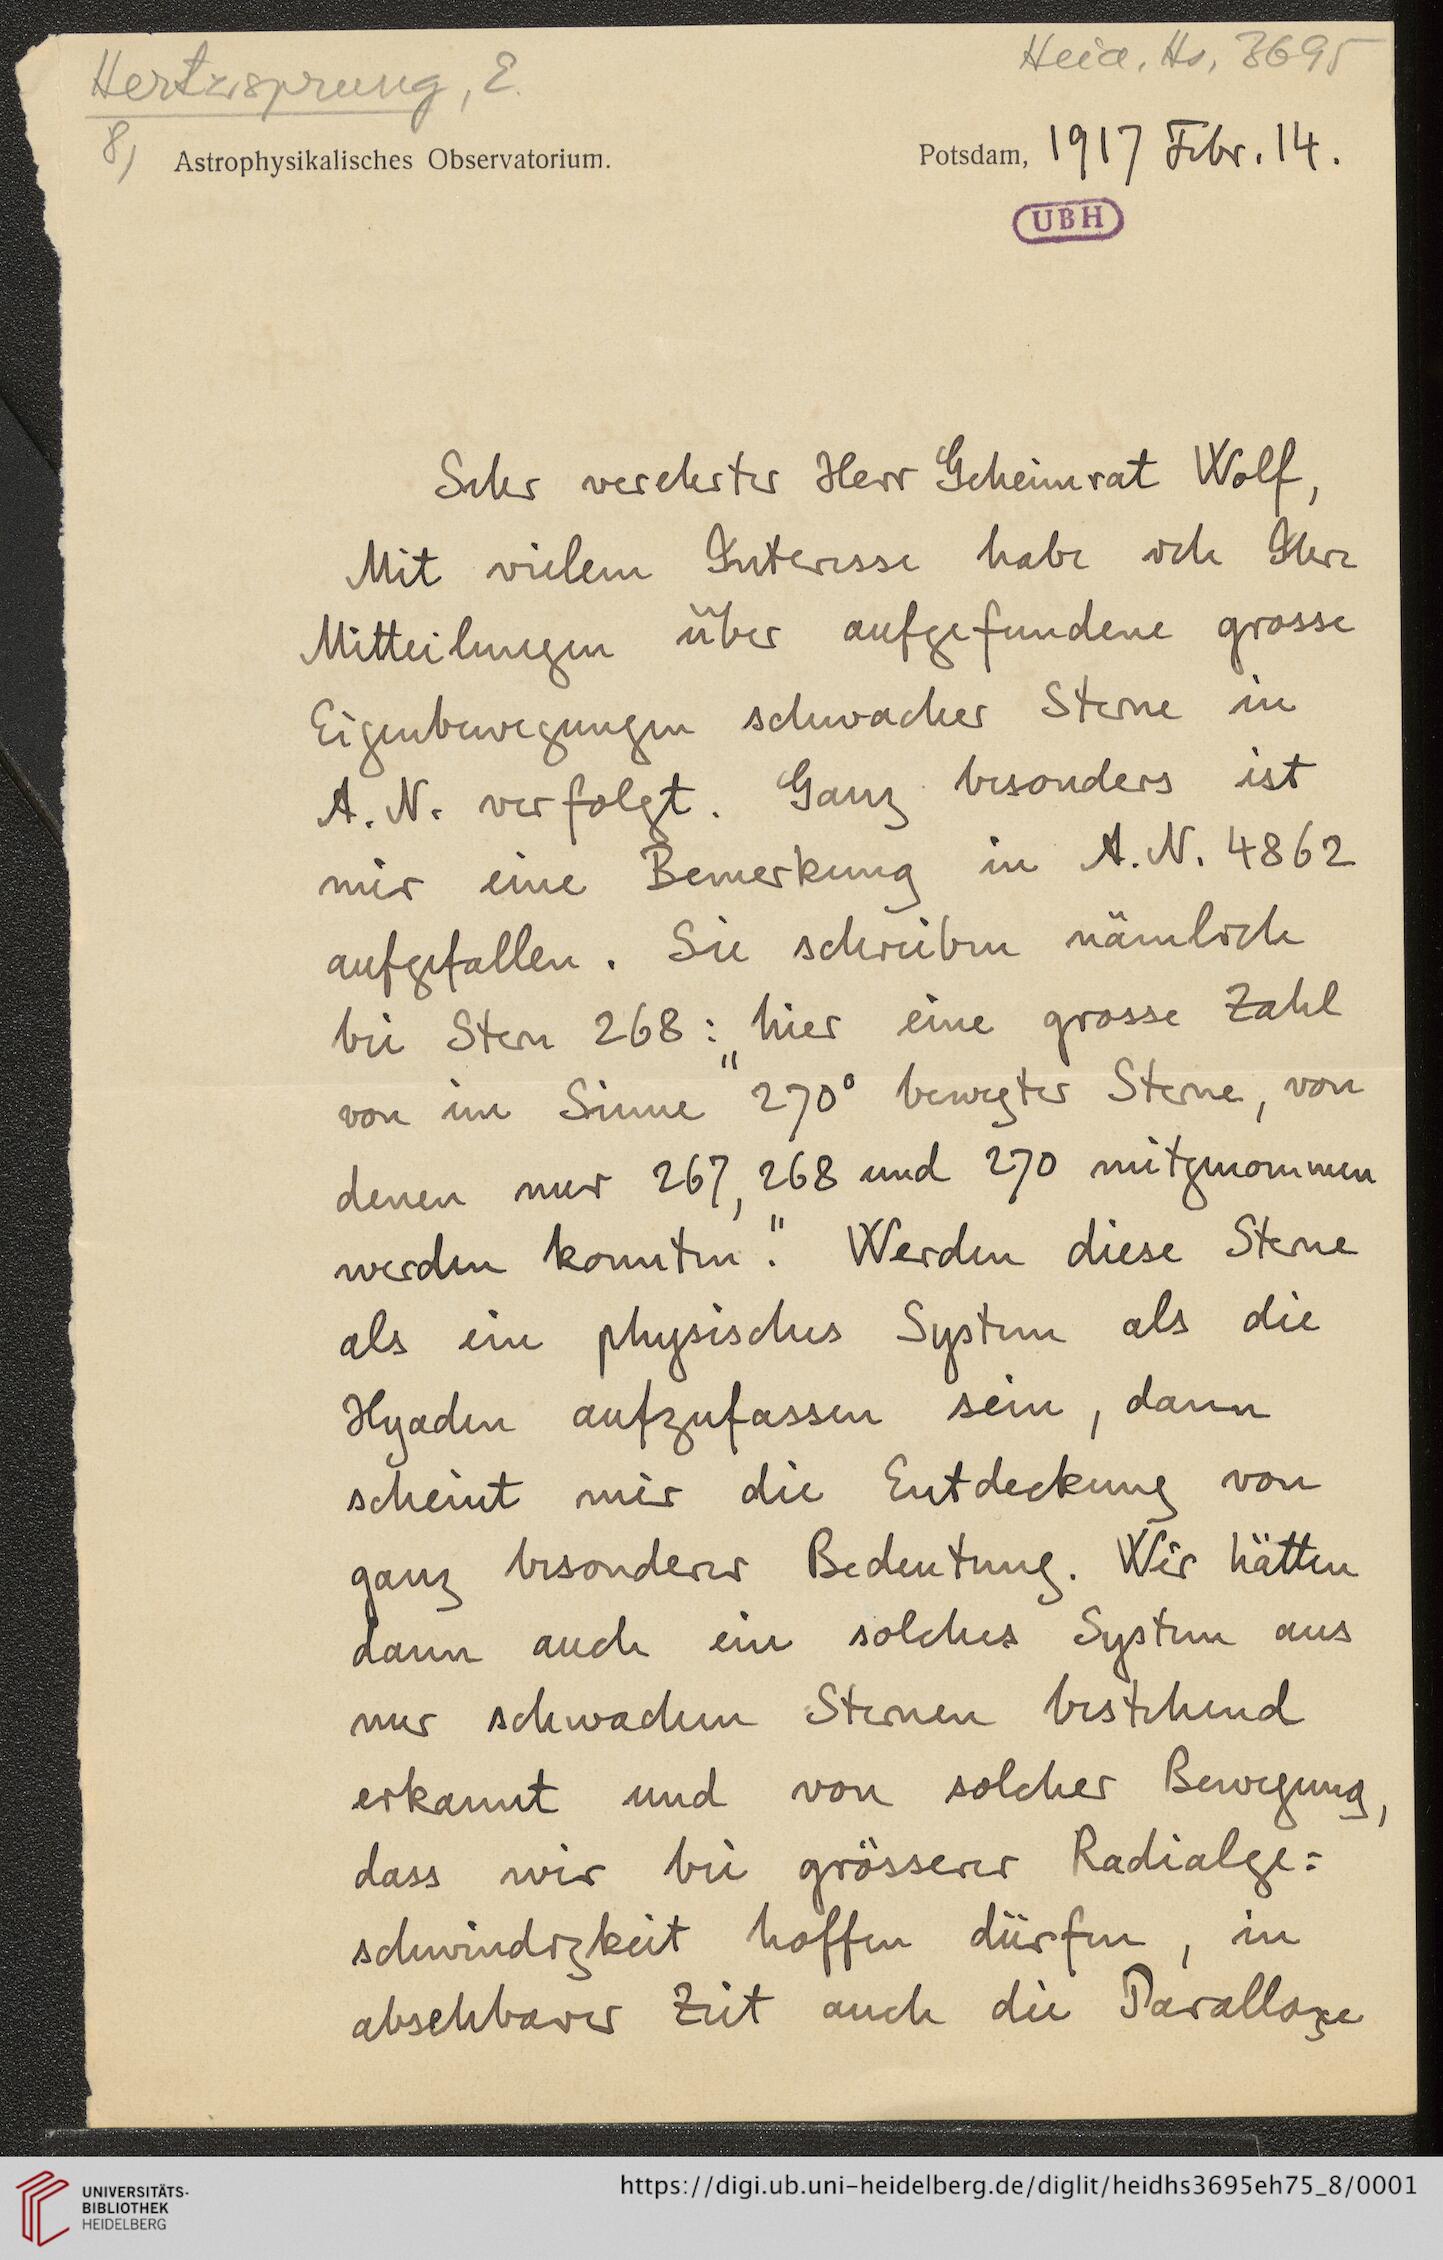 Hertzsprung, E.
Heid. Hs. 3695
8)
Astrophysikalisches Observatorium.
Potsdam, 1917 Febr. 14.
UBH
Sehr verehrter Herr Geheimrat Wolf,
Mit vielem Interesse habe ich Ihre
Mitteilungen über aufgefundene grosse
Eigenbewegungen schwacher Sterne in
A. N. verfolgt. Ganz besonders ist
mir eine Bemerkung in A. N. 4862
aufgefallen. Sie schreiben nämlich
bei Stern 268: „hier eine grosse Zahl
von im Sinne 270° bewegter Sterne, von
denen nur 267, 268 und 270 mitgenommen
werden konnten." Werden diese Sterne
als ein physisches System als die
Hyaden aufzufassen sein, dann
scheint mir die Entdeckung von
ganz besonderer Bedeutung. Wir hätten
dann auch ein solches System aus
nur schwachen Sternen bestehend
erkannt und von solcher Bewegung,
dass wir bei grösserer Radialge=
schwindigkeit hoffen dürfen, in
absehbarer Zeit auch die Parallaxe
UNIVERSITÄTS-
BIBLIOTHEK
HEIDELBERG
https://digi.ub.uni-heidelberg.de/diglit/heidhs3695eh75_8/0001